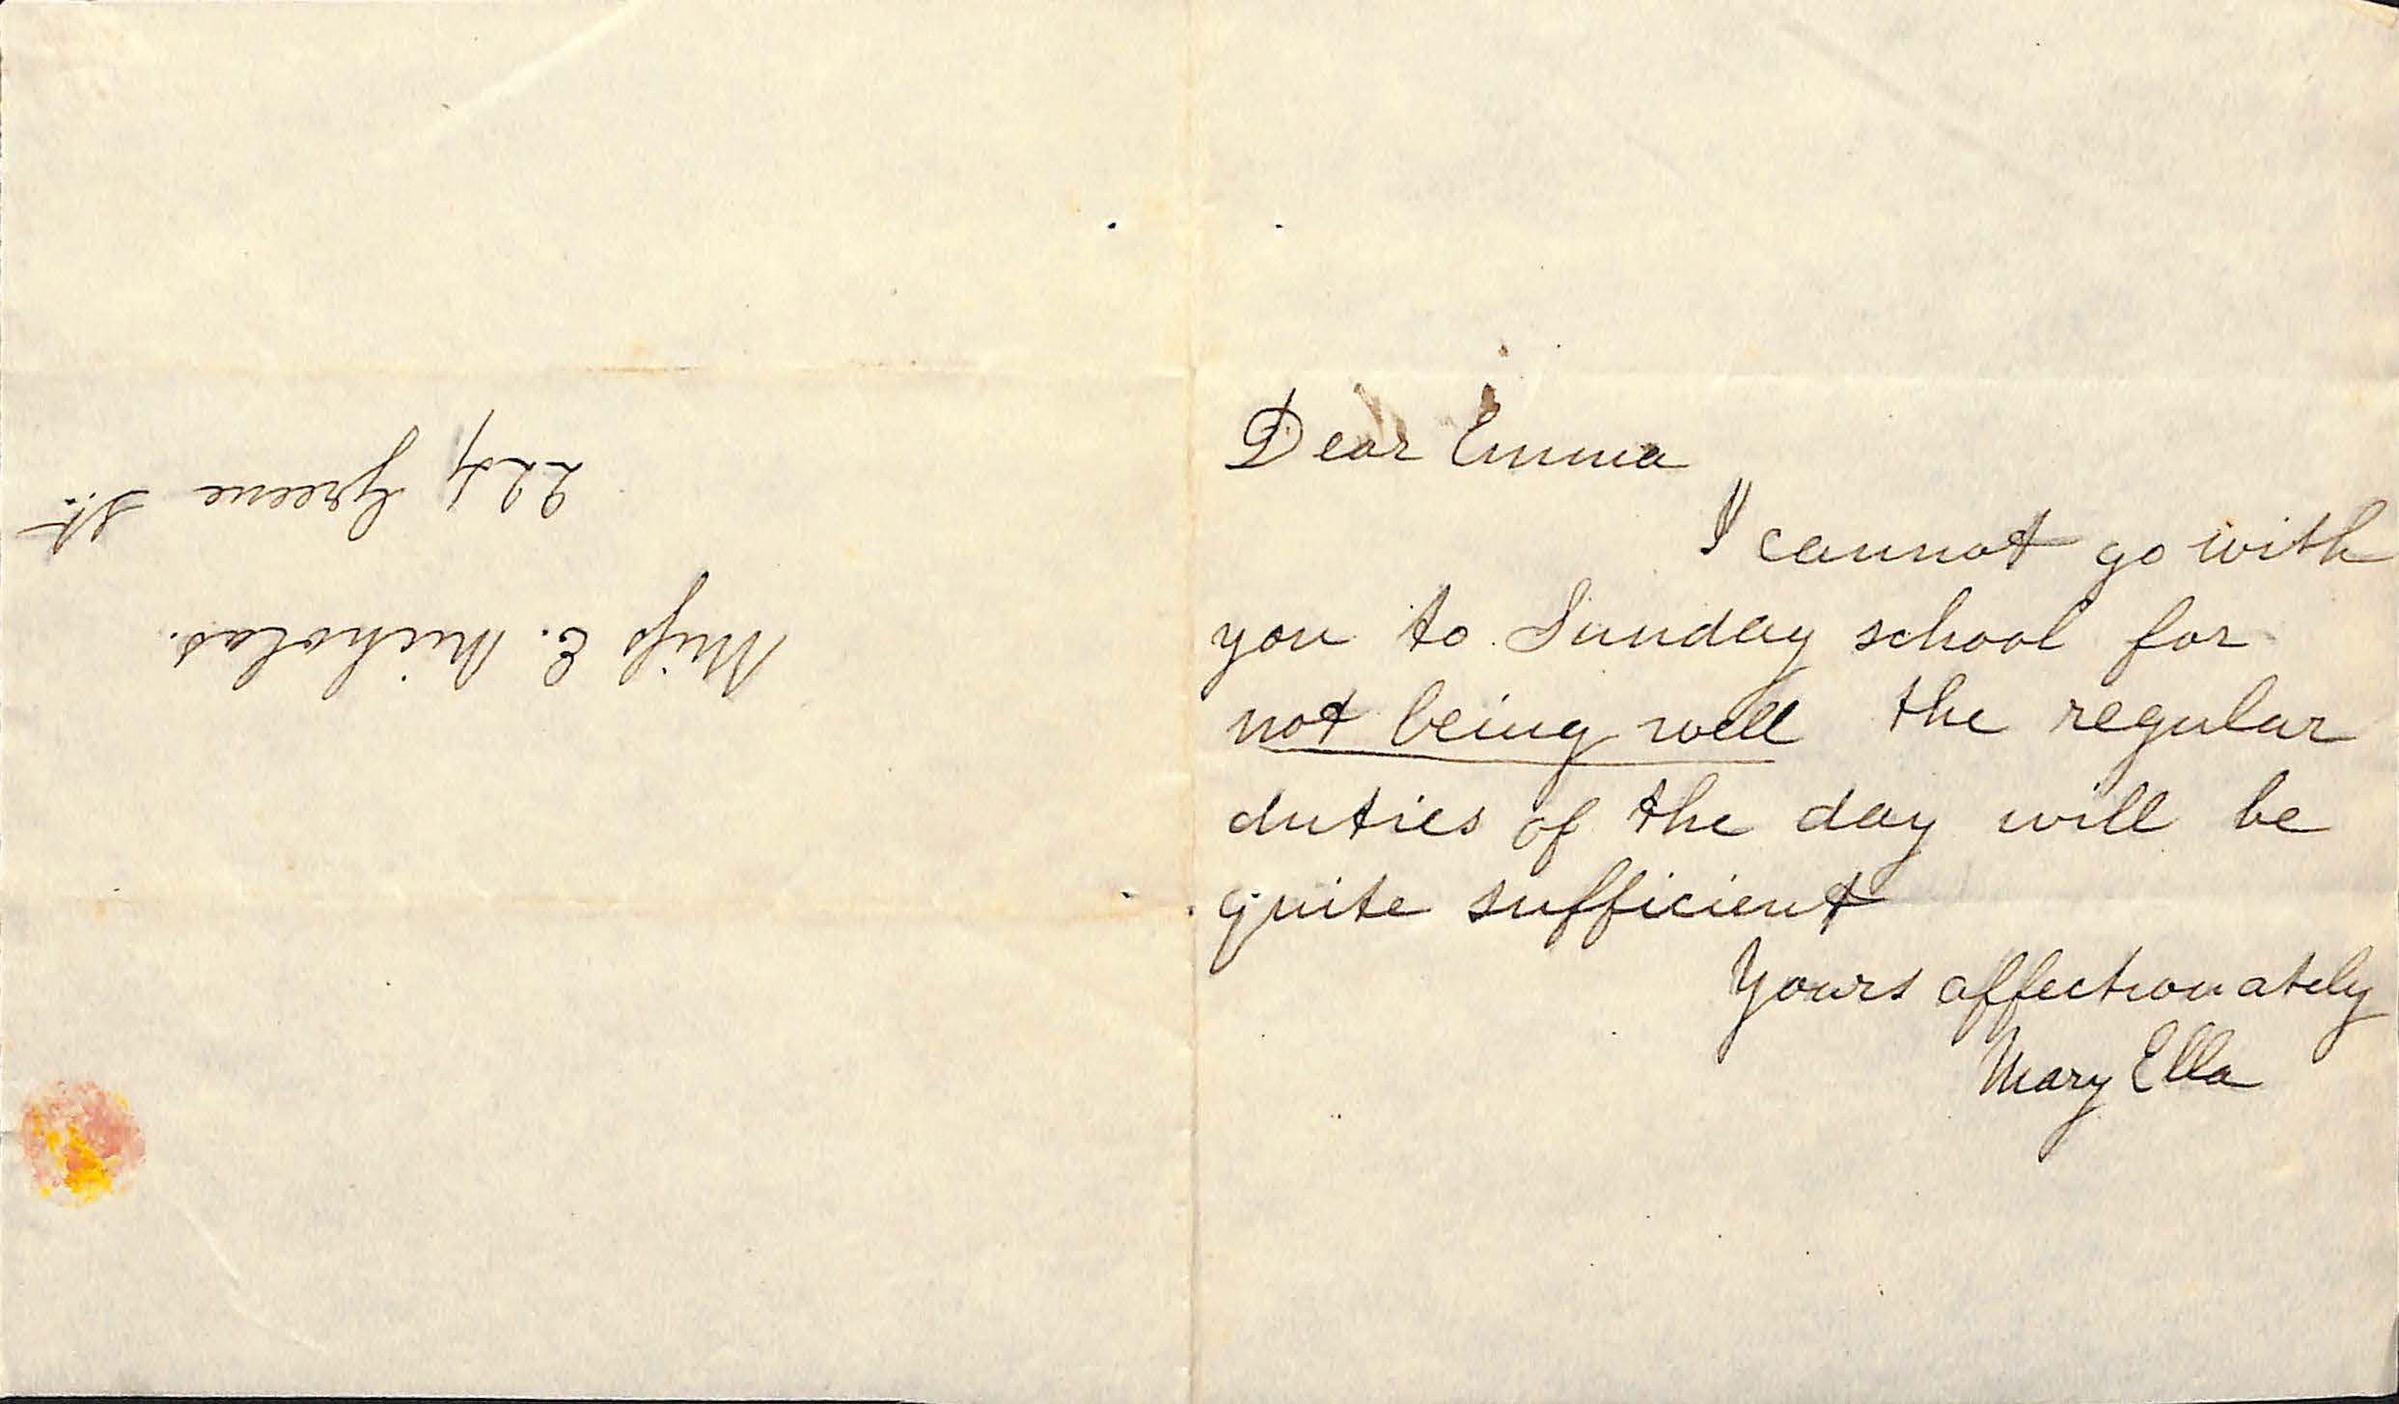 Miss E. Nicholas.
224 Greene St.
Dear Emma
I cannot go with
you to Sunday school for
not being well the regular
duties of the day will be
quite sufficient
Yours affectionately
Mary Ella